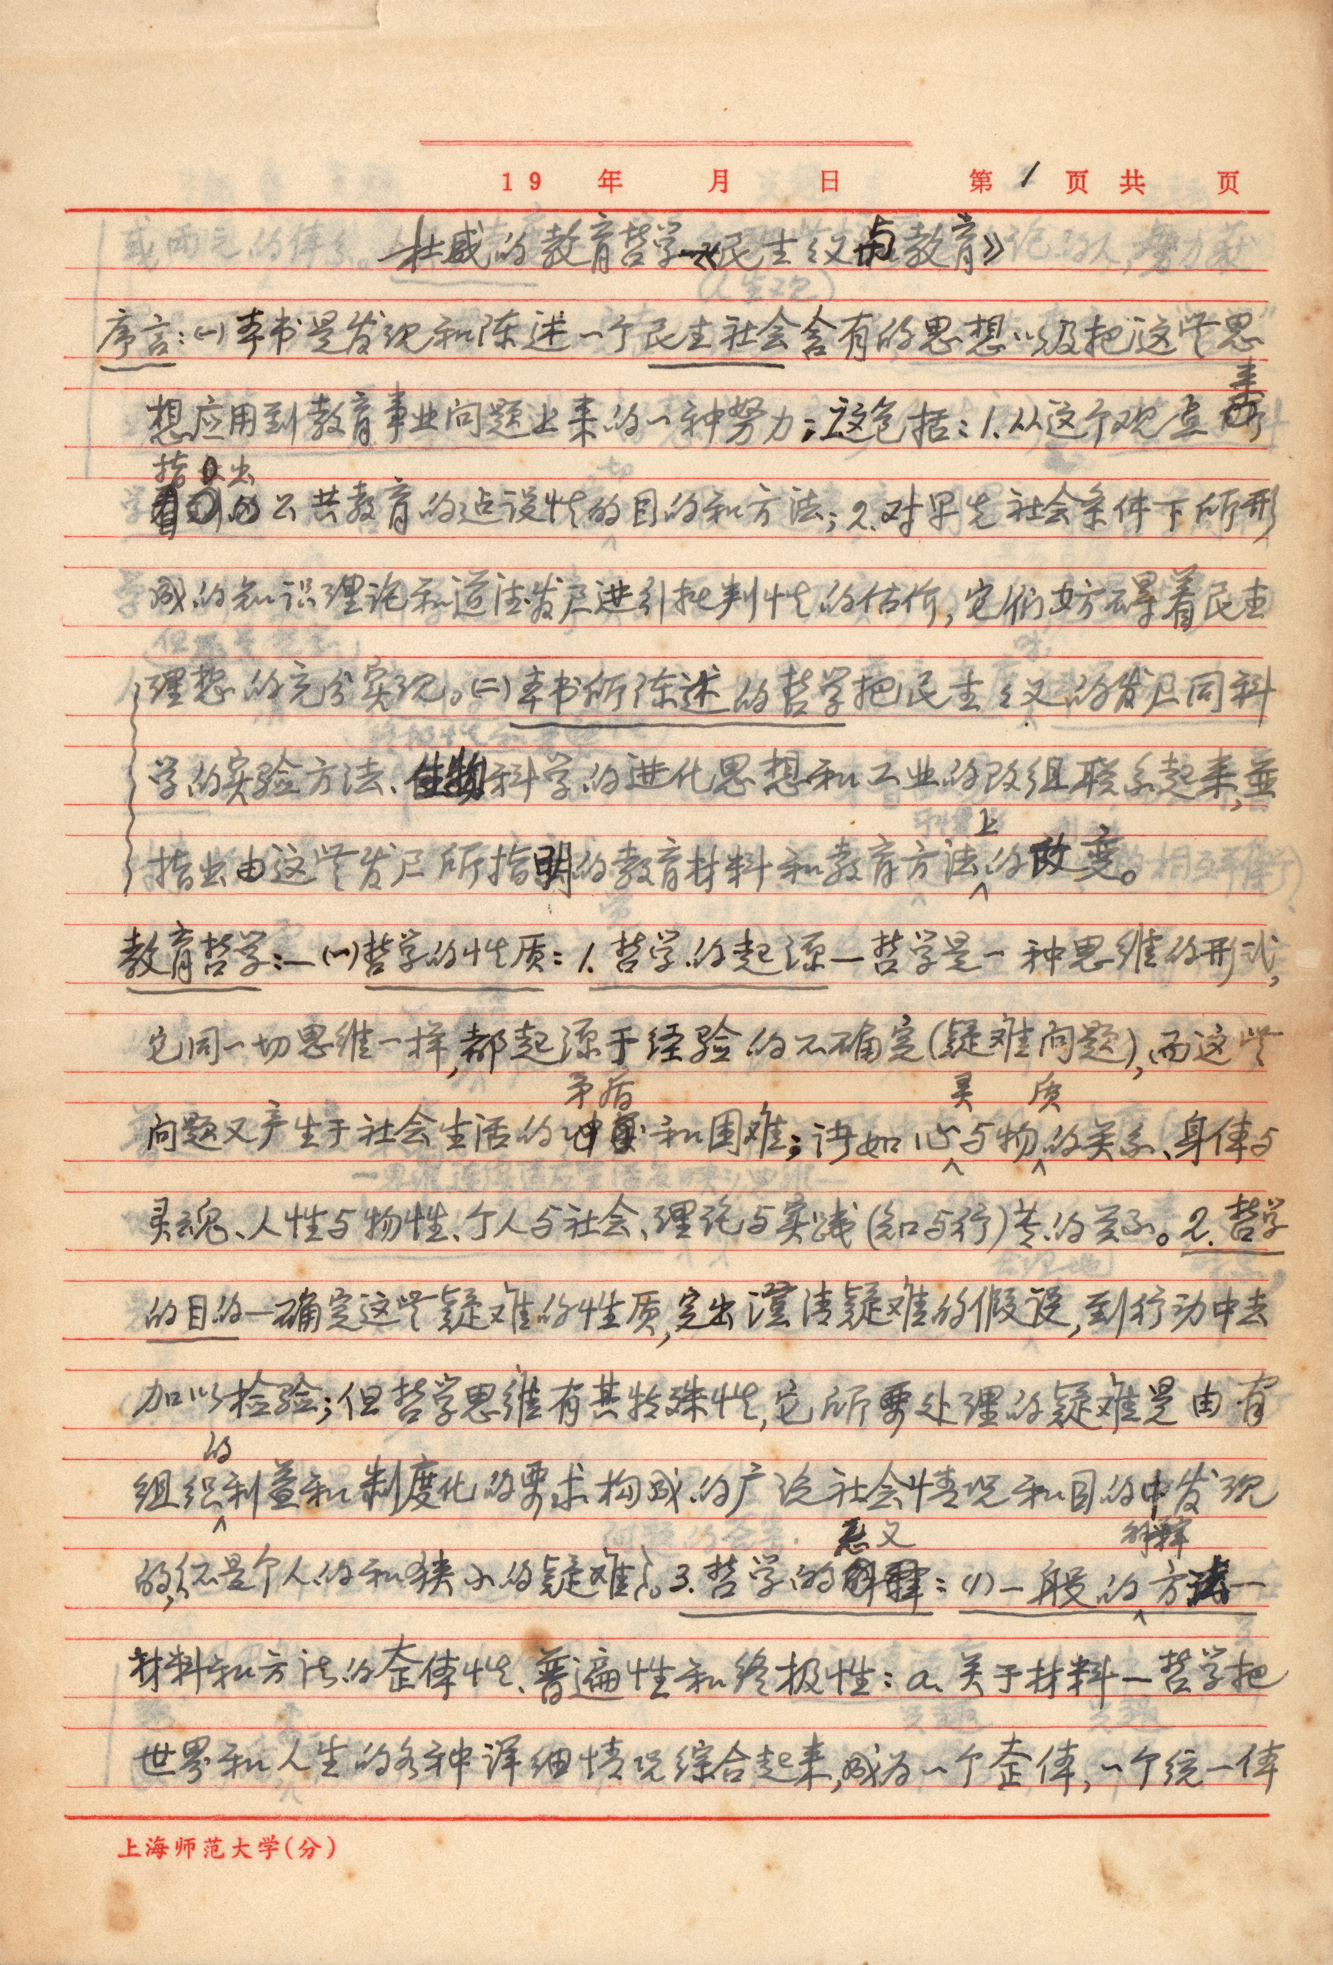 19 年 月 日 第1页共 页
杜威的教育哲学—《民主主义与教育》
序言:(一)本书是发现和陈述一个民主社会含有的思想以及把这些思
想应用到教育事业问题上来的一种努力;这包括:1.从这个观点来
指出公共教育的建设性的目的和方法;2.对早先社会条件下所形
成的知识理论和道德发展进行批判性的估价,它们妨碍着民主
理想的充分实现。(二)本书所陈述的哲学把民主主义的发展同科
学的实验方法、生物科学的进化思想和工业的改组联系起来,并
指出由这些发展所指明的教育材料和教育方法上的改变。
教育哲学:—(一)哲学的性质:1.哲学的起源—哲学是一种思维的形式,
它同一切思维一样,都起源于经验的不确定(疑难问题),而这些
问题又产生于社会生活的矛盾和困难;诸如心灵与物质的关系、身体与
灵魂、人性与物性、个人与社会、理论与实践(知与行)等的关系。2.哲学
的目的—确定这些疑难的性质,定出澄清疑难的假设,到行动中去
加以检验;但哲学思维有其特殊性,它所要处理的疑难是由有
组织的利益和制度化的要求构成的广泛社会情况和目的中发现
的,不是个人的和狭小的疑难。3.哲学的意义:(1)一般的解释—
材料和方法的整体性、普遍性和终极性:a.关于材料—哲学把
世界和人生的各种详细情况综合起来,成为一个整体,一个统一体
上海师范大学(分)